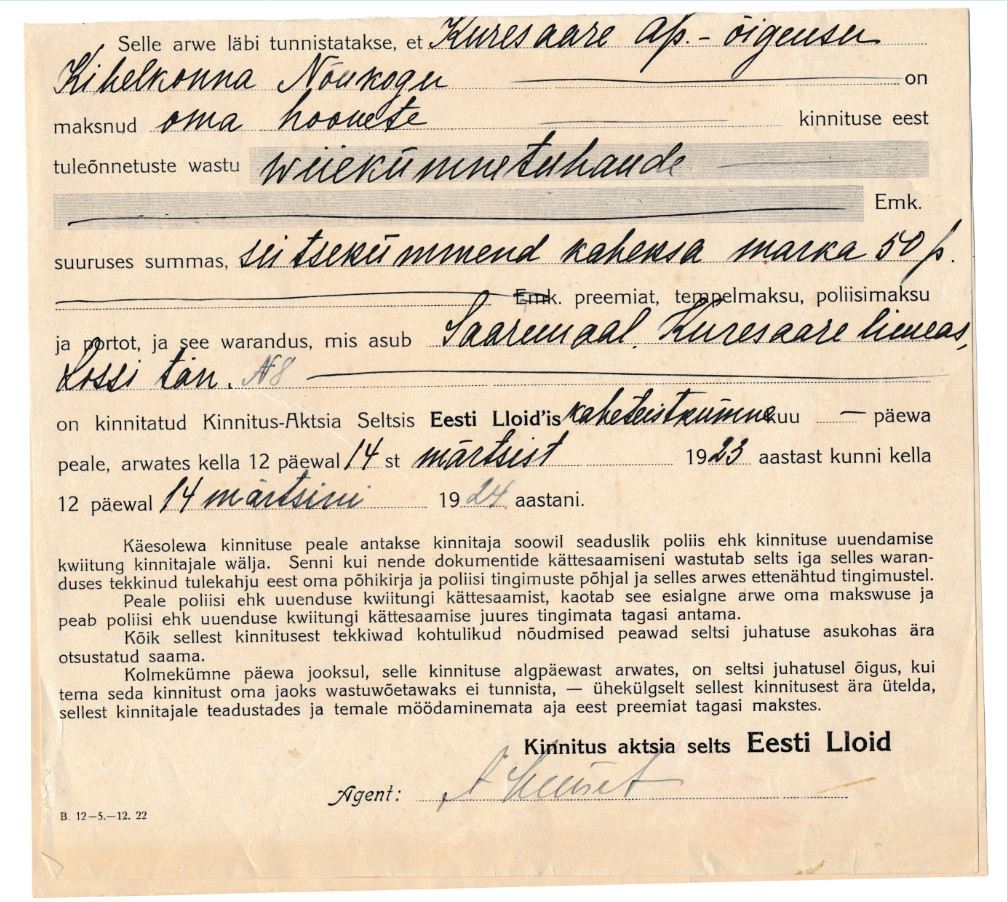 Selle arwe läbi tunnistatakse, et Kuresaare ap.-õigeusu
Kihelkonna Nõukogu on
maksnud oma hoonete kinnituse eest
tuleõnnetuste wastu wiiekümnetuhande
Emk.
suuruses summas, seitsekümmend kaheksa marka 50 p.
Emk. preemiat, tempelmaksu, poliisimaksu
ja portot, ja see warandus, mis asub Saaremaal, Kuresaare linnas,
Lossi tän. N8
on kinnitatud Kinnitus-Aktsia Seltsis Eesti Lloid'is kaheteistkümne kuu — päewa
peale, arwates kella 12 päewal 14 st märtsist 1923 aastast kunni kella
12 päewal 14 märtsini 1924 aastani.
Käesolewa kinnituse peale antakse kinnitaja soowil seaduslik poliis ehk kinnituse uuendamise
kwiitung kinnitajale wälja. Senni kui nende dokumentide kättesaamiseni wastutab selts iga selles waran-
duses tekkinud tulekahju eest oma põhikirja ja poliisi tingimuste põhjal ja selles arwes ettenähtud tingimustel.
Peale poliisi ehk uuenduse kwiitungi kättesaamist, kaotab see esialgne arwe oma makswuse ja
peab poliisi ehk uuenduse kwiitungi kättesaamise juures tingimata tagasi antama.
Kõik sellest kinnitusest tekkiwad kohtulikud nõudmised peawad seltsi juhatuse asukohas ära
otsustatud saama.
Kolmekümne päewa jooksul, selle kinnituse algpäewast arwates, on seltsi juhatusel õigus, kui
tema seda kinnitust oma jaoks wastuwõetawaks ei tunnista, — ühekülgselt sellest kinnitusest ära ütelda,
sellest kinnitajale teadustades ja temale möödaminemata aja eest preemiat tagasi makstes.
Kinnitus aktsia selts Eesti Lloid
Agent:
B. 12—5.—12. 22